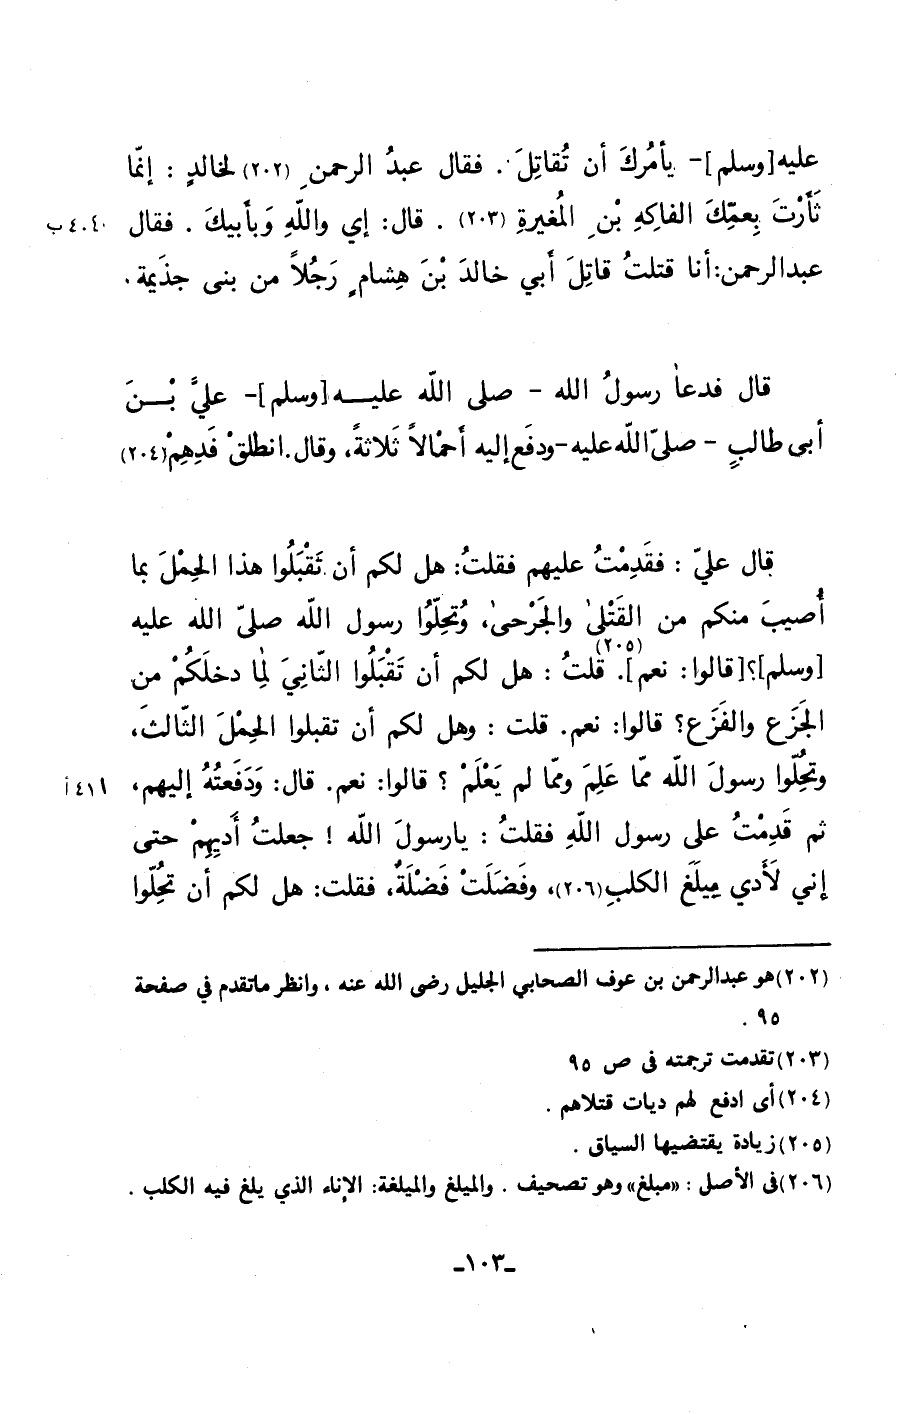 عليه[وسلم]- يأمُركَ أن تُقاتِلَ . فقال عبدُ الرحمنِ (٢٠٢) لخالدٍ : إنّما
ثَأَرْتَ بِعمِّكَ الفاكِهِ بْنِ المُغيرةِ (٢٠٣) . قال: إي واللّهِ وَبأَبيكَ . فقال
عبدالرحمن:أنا قتلتُ قاتِلَ أَبي خالدَ بْنَ هِشامٍ رَجُلاً من بنى جذَيمة .
قال فدعا رسولُ الله - صلى اللّه عليـه[وسلم]- عليَّ بْـنَ
أبى طالبٍ - صلىّ اللّه عليه-ودفَع إليه أحْمالاً ثَلاثةً، وقال.انطلقْ فَدِهِمْ(٢٠٤)
قال عليّ : فقَدِمْتُ عليهم فقلتُ: هل لكم أن تَقْبَلُوا هذا الحِمْلَ بما
أُصيبَ منكم من القَتْلىٰ والجَرْحىٰ، وُتحِلّوُا رسول اللّه صلىّ الله عليه
[وسلم]؟[قالوا: نعم](٢٠٥). قلتُ : هل لكم أن تَقْبَلُوا الثّانيَ لِما دخلَكُمْ من
الجَزَع والفَزَع؟ قالوا: نعم. قلت : وهل لكم أن تقبلوا الحِملَ الثّالثَ،
وتحُلّوا رسولَ اللّه ممّا عَلِمَ وممّا لم يَعْلَمْ ؟ قالوا: نعم. قال: وَدَفَعتُهُ إليهم،
ثم قَدِمْتُ على رسول اللّهِ فقلتُ : يارسولَ اللّه ! جعلتُ أَدِيهِمْ حتى
إني لَأَدي مِيلَغَ الكلبِ(٢٠٦)، وفَضَلَتْ فَضْلَةٌ، فقلت: هل لكم أن تحُلّوا
(٢٠٢)هو عبدالرحمن بن عوف الصحابي الجليل رضى الله عنه ، وانظر ماتقدم في صفحة
٩٥ .
(٢٠٣)تقدمت ترجمته فى ص ٩٥
(٢٠٤)أى ادفع لهم ديات قتلاهم .
(٢٠٥)زيادة يقتضيها السياق .
(٢٠٦)فى الأصل : «مبلغ» وهو تصحيف . والميلغ والميلغة: الإناء الذي يلغ فيه الكلب .
-١٠٣-